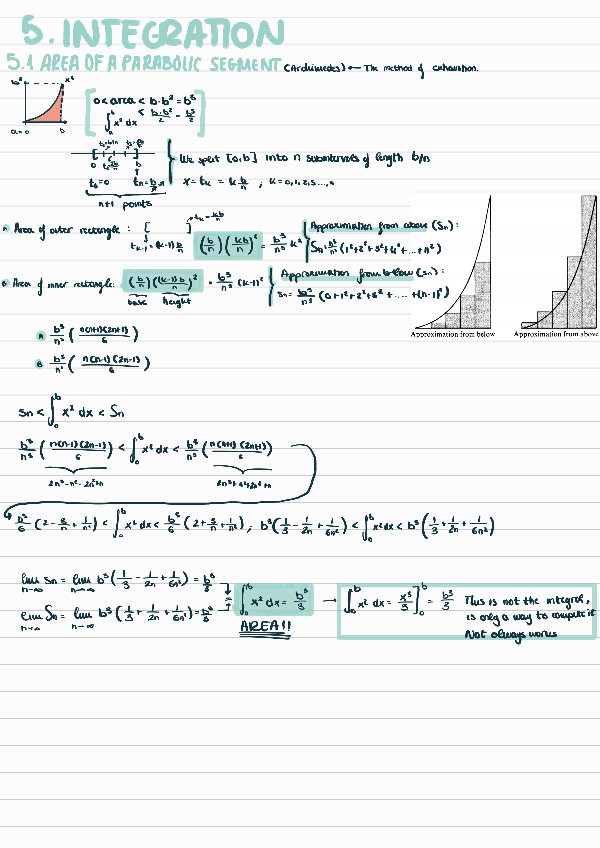 5. INTEGRATION
5.1 AREA OF A PARABOLIC SEGMENT (Archimedes) ← The method of exhaustion.
b² x²
a=0 b
0 < area < b·b² = b³
∫₀ᵇ x² dx < b·b²/2 = b³/2
We split [0,b] into n subintervals of length b/n
0 b
t₀=0 tₙ= b/n·n x = tₖ = k b/n ; k=0,1,2,3,...,n
n+1 points
A Area of outer rectangle: [ ] tₖ = kb/n
tₖ₋₁=(k-1) b/n
(b/n)(kb/n)² = b³/n³ k²
Approximation from above (Sn):
Sn= b³/n³ (1²+2²+3²+4²+...+n²)
B Area of inner rectangle: (b/n)((k-1)b/n)² = b³/n³ (k-1)²
base height
Approximation from below (sn):
sn= b³/n³ (0+1²+2²+3²+....+(n-1)²)
Approximation from below Approximation from above
A b³/n³ (n(n+1)(2n+1)/6)
B b³/n³ (n(n-1)(2n-1)/6)
sn < ∫₀ᵇ x² dx < Sn
b³/n³ (n(n-1)(2n-1)/6) < ∫₀ᵇ x² dx < b³/n³ (n(n+1)(2n+1)/6)
b³/6 (2 - 3/n + 1/n²) < ∫₀ᵇ x² dx < b³/6 (2 + 3/n + 1/n²) ; b³(1/3 - 1/2n + 1/6n²) < ∫₀ᵇ x² dx < b³(1/3 + 1/2n + 1/6n²)
lim n→∞ sn = lim n→∞ b³(1/3 - 1/2n + 1/6n²) = b³/3
lim n→∞ Sn = lim n→∞ b³(1/3 + 1/2n + 1/6n²) = b³/3
∫₀ᵇ x² dx = b³/3 → ∫₀ᵇ x² dx = x³/3 ]₀ᵇ = b³/3
AREA!!
This is not the integral,
is only a way to compute it
Not always works